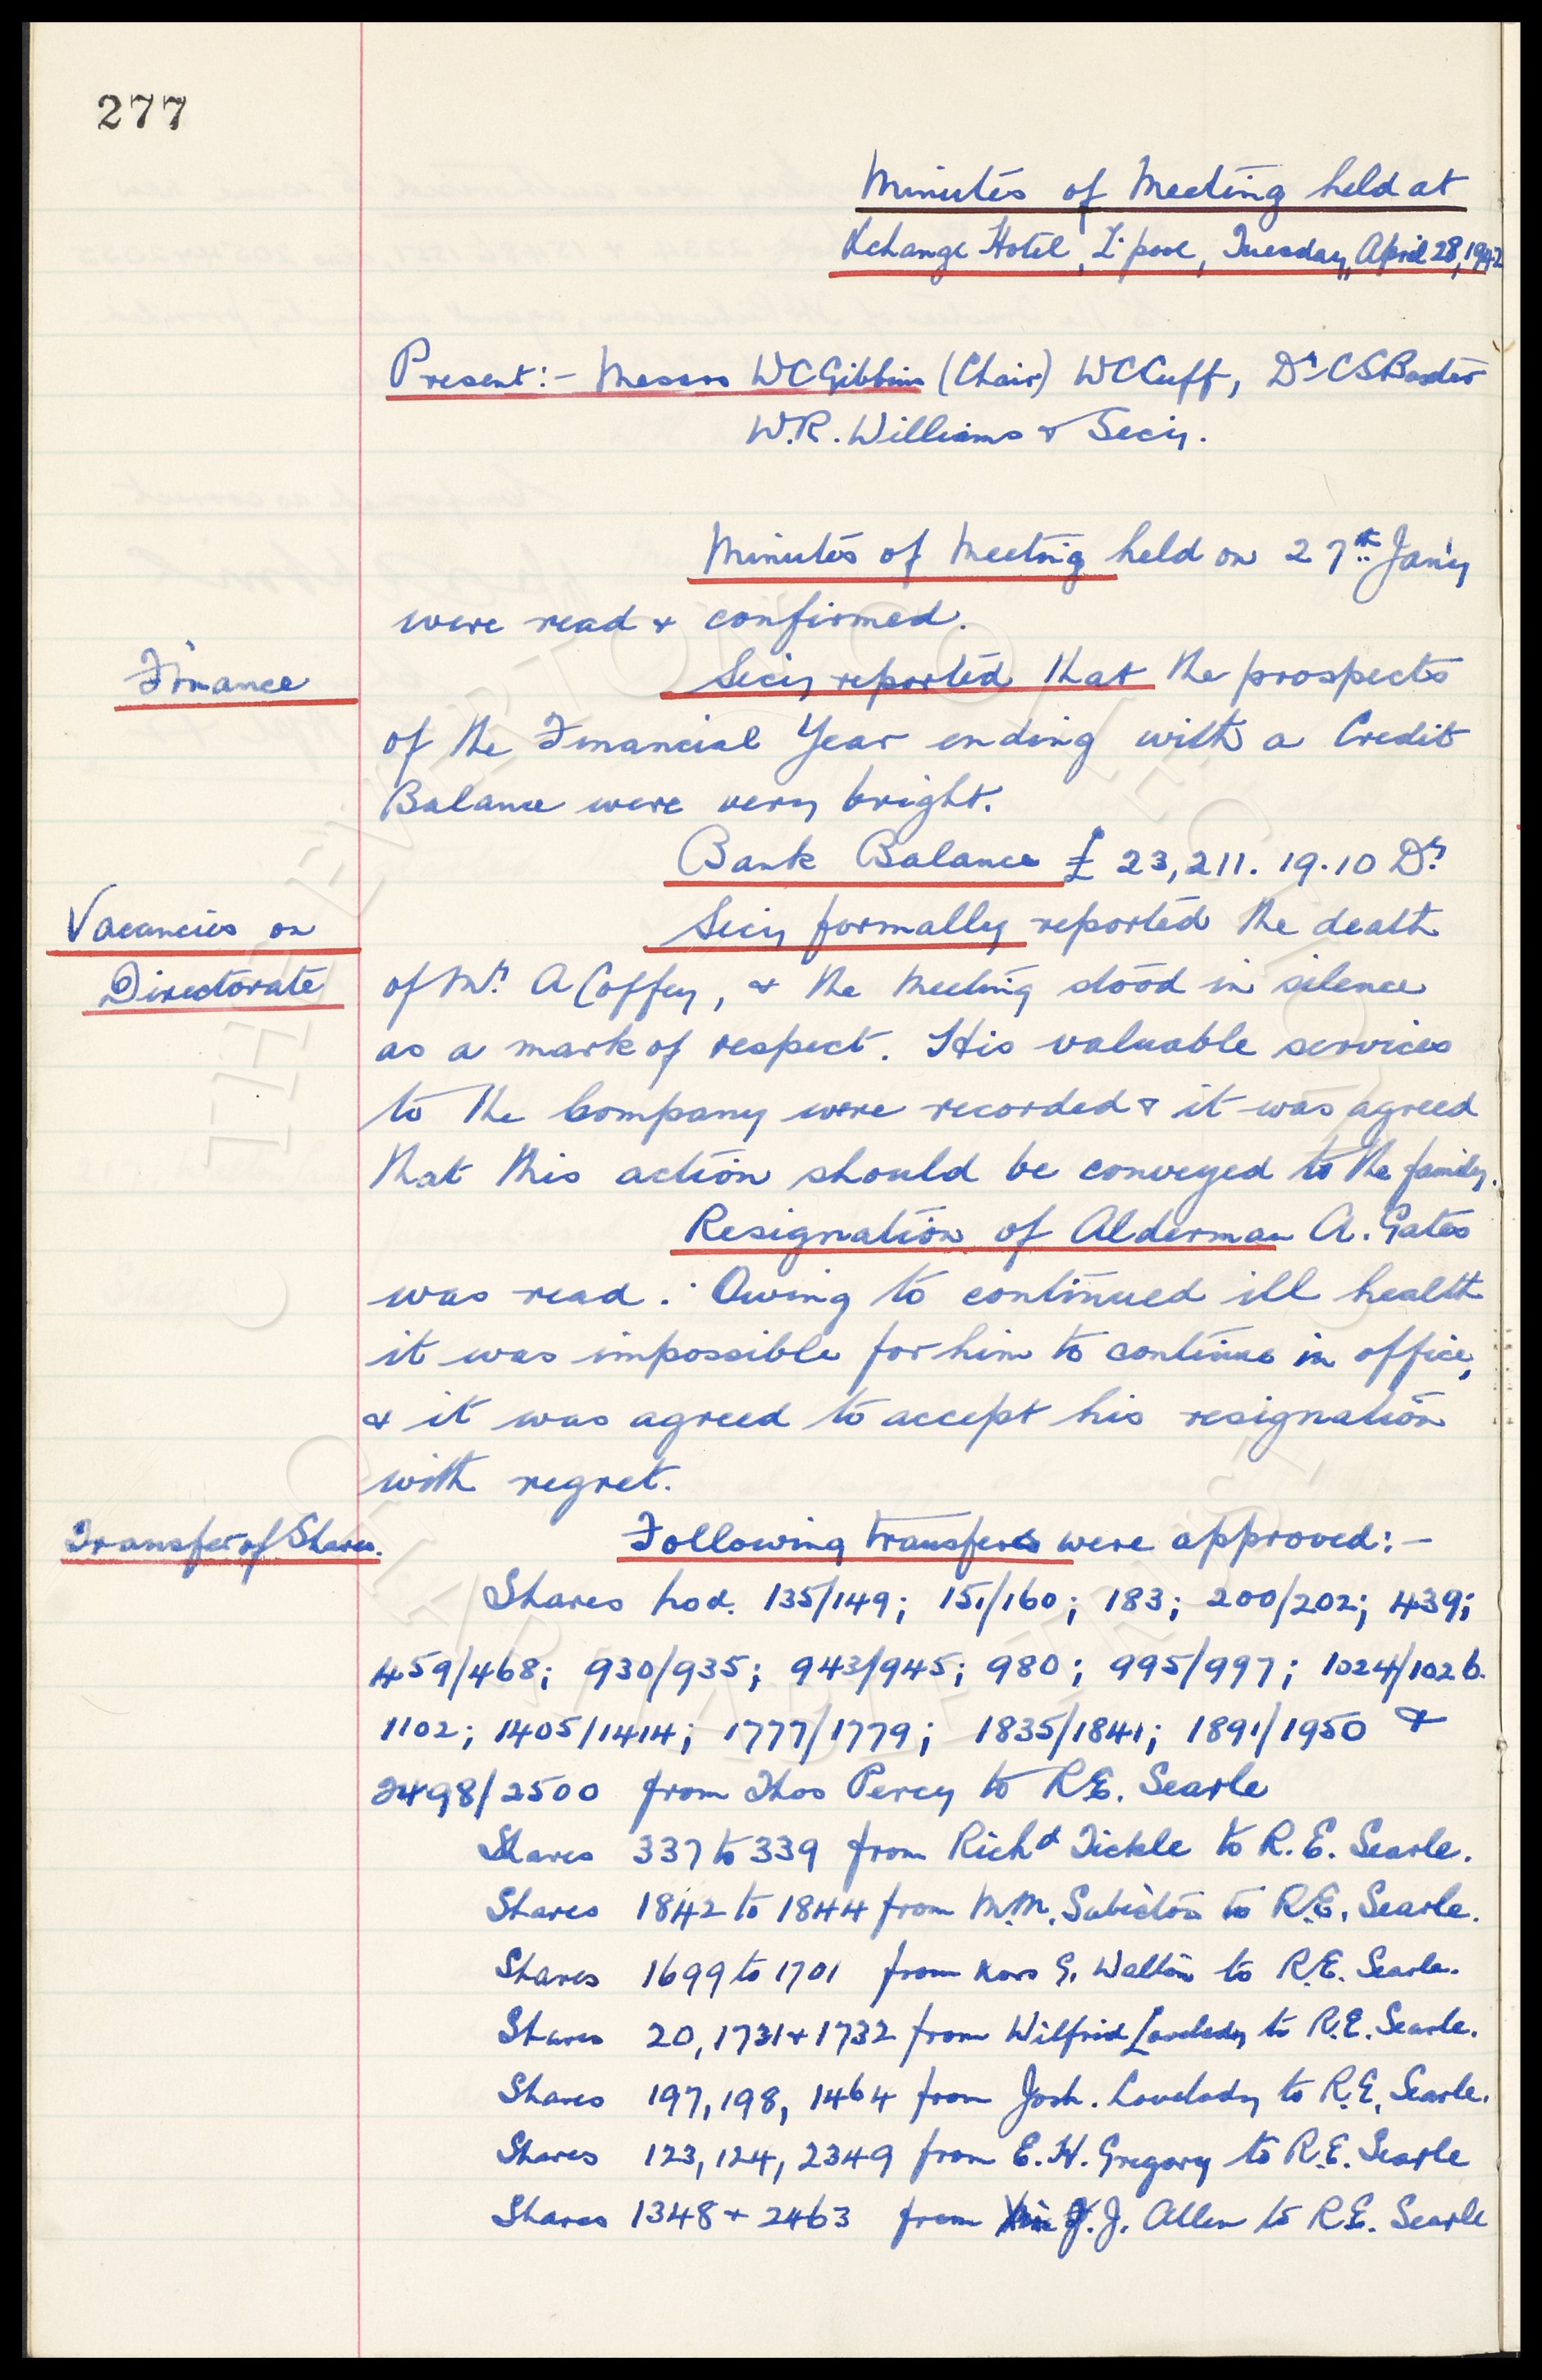 277
Minutes of Meeting held at
Xchange Hotel, L'pool, Tuesday, April 28, 1942
Present:- Messrs WC Gibbins (Chair) WC Cuff, Dr CS Baxter
W.R. Williams & Secy.
Minutes of Meeting held on 27th Jan'y
were read & confirmed.
Finance
Secy reported that the prospects
of the Financial Year ending with a Credit
Balance were very bright.
Bank Balance £23,211.19.10 Dr
Vacancies on
Directorate
Secy formally reported the death
of Mr. A Coffey, & the Meeting stood in silence
as a mark of respect. His valuable services
to the Company were recorded & it was agreed
that this action should be conveyed to the family.
Resignation of Alderman A. Gates
was read. Owing to continued ill health
it was impossible for him to continue in office,
& it was agreed to accept his resignation
with regret.
Transfer of Shares.
Following transfers were approved:-
Shares nos. 135/149; 151/160; 183; 200/202; 439;
459/468; 930/935; 943/945; 980; 995/997; 1024/1026.
1102; 1405/1414; 1777/1779; 1835/1841; 1891/1950 &
2498/2500 from Thos Percy to R.E. Searle
Shares 337 to 339 from Richd Tickle to R.E. Searle.
Shares 1842 to 1844 from M.M. to R.E. Searle.
Shares 1699 to 1701 from G. Walton to R.E. Searle.
Shares 20, 1731 & 1732 from Wilfrid Lovelady to R.E. Searle.
Shares 197, 198, 1464 from Josh. Lovelady to R.E. Searle.
Shares 123, 124, 2349 from E.H. Gregory to R.E. Searle
Shares 1348 & 2463 from J. Allen to R.E. Searle
THE EVERTON COLLECTION
CHARITABLE TRUST